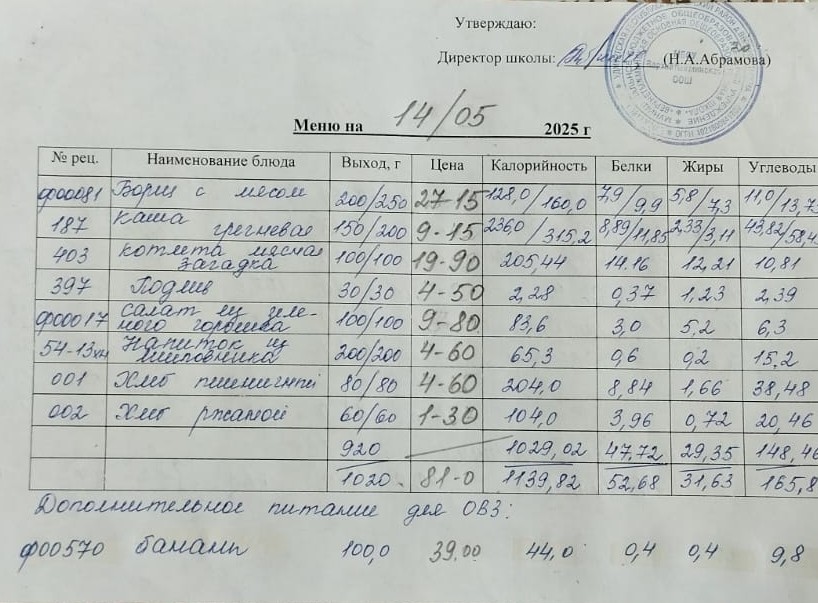 Утверждаю:
Директор школы: (Н.А.Абрамова)
Меню на 14/05 2025 г
№ рец. Наименование блюда Выход, г Цена Калорийность Белки Жиры Углеводы
ф00081 Борщ с мясом 200/250 27-15 128,0/160,0 7,9/9,9 5,8/7,3 11,0/13,75
187 каша гречневая 150/200 9-15 2360/315,2 8,89/11,85 2,33/3,11 43,82/58,4
403 котлета мясная загадка 100/100 19-90 205,44 14.16 12,21 10,81
397 Подлив 30/30 4-50 2,28 0,37 1,23 2,39
ф00017 салат из зеле-
ного горошка 100/100 9-80 83,6 3,0 5,2 6,3
54-13хн Напиток из шиповника 200/200 4-60 65,3 0,6 0,2 15,2
001 Хлеб пшеничный 80/80 4-60 204,0 8,84 1,66 38,48
002 Хлеб ржаной 60/60 1-30 104,0 3,96 0,72 20,46
920 1029,02 47,72 29,35 148,46
1020. 81-0 1139,82 52,68 31,63 165,8
Дополнительное питание для ОВЗ:
ф00570 бананы 100,0 39.00 44,0 0,4 0,4 9,8